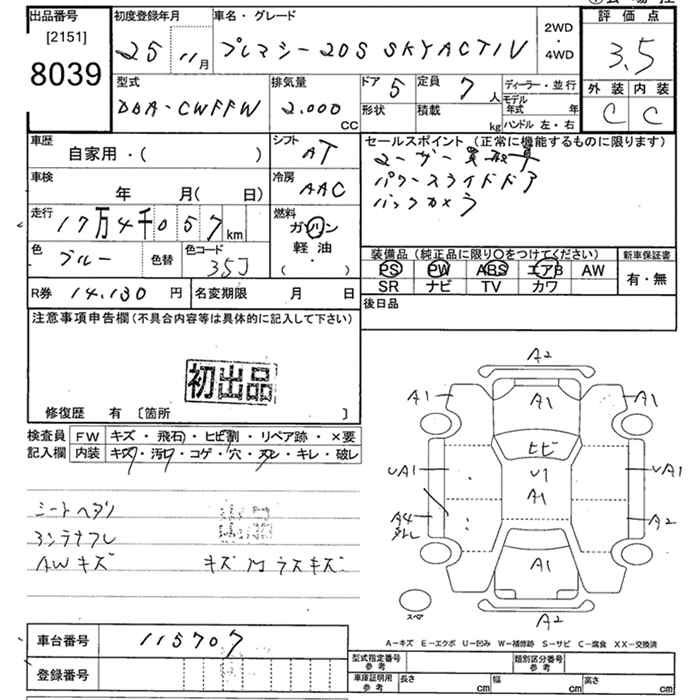 出品番号 初度登録年月 車名・グレード 2WD・4WD 評価点
[2151]
8039
25 11月 プレマシー 20S SKYACTIV 3.5
外装 内装
C C
型式 排気量 ドア 5 定員 7人 ディーラー・並行
DBA-CWFFW 2.000 CC 形状 積載 kg モデル年式 年
ハンドル 左・右
車歴 シフト AT セールスポイント (正常に機能するものに限ります)
自家用・( )
ユーザー買取車
車検 冷房 AAC パワースライドドア
年 月( 日) バックカメラ
走行 17万4千057km 燃料 ガソリン 軽油・( )
色 ブルー 色替 色コード 35J
装備品 (純正品に限り○をつけてください) 新車保証書
PS PW ABS エアB AW 有・無
SR ナビ TV カワ
R券 14.130円 名変期限 月 日 後日品
注意事項申告欄(不具合内容等は具体的に記入して下さい)
初出品
修復歴 有 [箇所 ]
検査員 FW キズ・飛石・ヒビ割・リペア跡・×要
記入欄 内装 キズ・汚レ・コゲ・穴・スレ・キレ・破レ
シートヘタリ
コンテナフレ
AWキズ キズ
A2
A1 A1 A1
ヒビ
UA1 U1 UA1
A1
A4 A2
A1
スペア A2
A-キズ E-エクボ U-凹み W-補修跡 S-サビ C-腐食 XX-交換済
車台番号 115707
登録番号
型式指定番号 参考 類別区分番号 参考
車庫証明用 参考 長さ cm 幅 cm 高さ cm